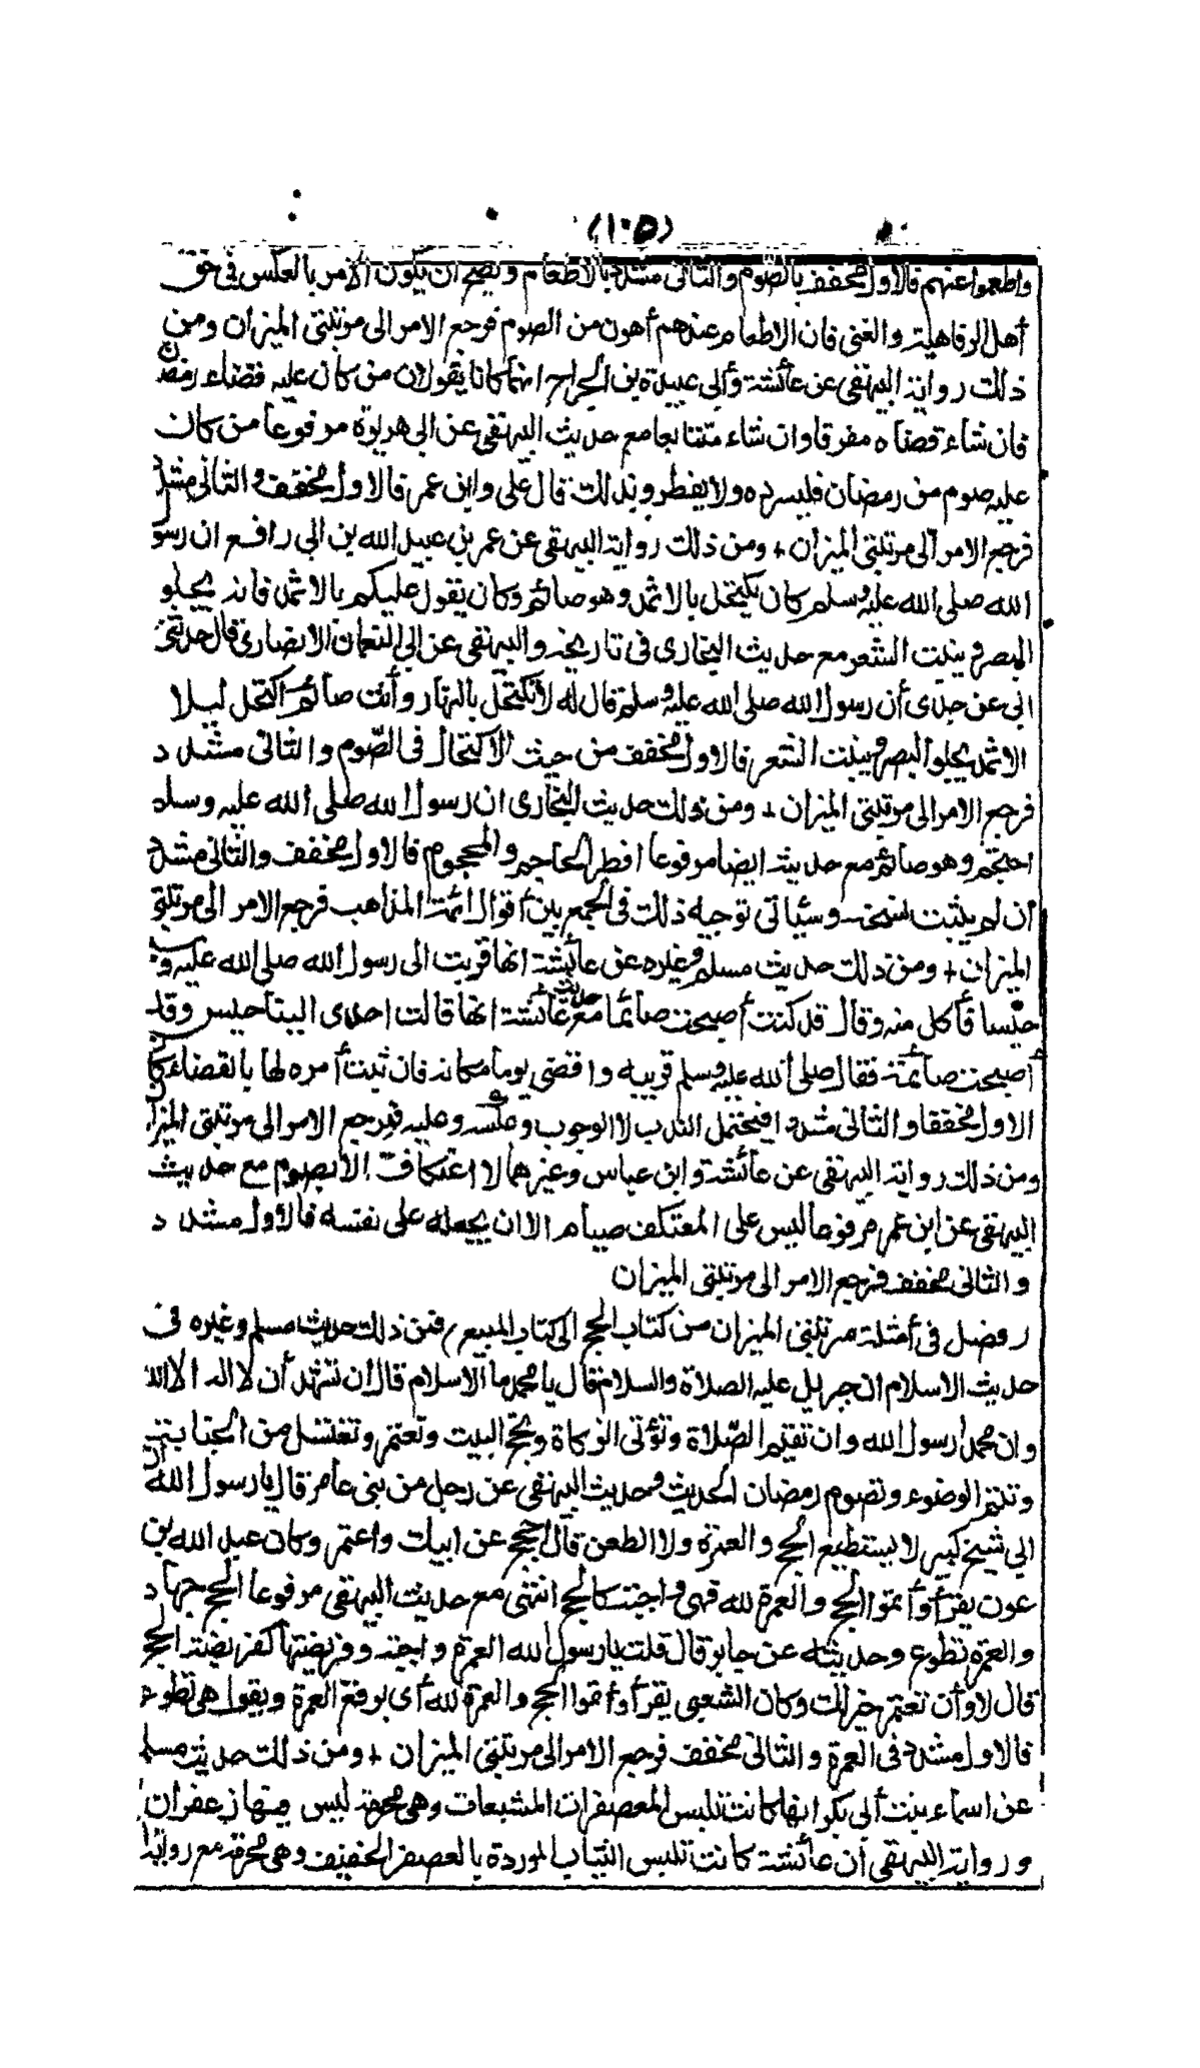 (١٠٥)
واطعموا عنهم فالاول مخفف بالصوم والثاني مشدد بالاطعام ويصح ان يكون الامر بالعكس في حق
أهل الرفاهية والغنى فان الاطعام عندهم أهون من الصوم فرجع الامر الى مرتبتى الميزان ومن
ذلك رواية البيهقى عن عائشة وأبى عبيدة بن الجراح انهما كانا يقولان من كان عليه قضاء رمضان
فان شاء قضاه مفرقا وان شاء متتابعا مع حديث البيهقى عن ابى هريرة مرفوعا من كان
عليه صوم من رمضان فليسرده ولا يفطر وبذلك قال على وابن عمر فالاول مخفف والثانى مشدد
فرجع الامر الى مرتبتى الميزان + ومن ذلك رواية البيهقى عن عمر بن عبيد الله بن ابى رافع ان رسول
الله صلى الله عليه وسلم كان يكتحل بالاثمد وهو صائم وكان يقول عليكم بالاثمد فانه يجلو
البصر وينبت الشعر مع حديث البخارى فى تاريخه والبيهقى عن ابى النعمان الانصارى قال حدثنى
ابى عن جدى أن رسول الله صلى الله عليه وسلم قال له لا تكتحل بالنهار وأنت صائم اكتحل ليلا
الاثمد يجلو البصر وينبت الشعر فالاول مخفف من حيث الاكتحال فى الصوم والثانى مشدد
فرجع الامر الى مرتبتى الميزان + ومن ذلك حديث البخارى ان رسول الله صلى الله عليه وسلم
احتجم وهو صائم مع حديثه ايضا مرفوعا افطر الحاجم والمحجوم فالاول مخفف والثانى مشدد
ان لم يثبت نسخه وسيأتى توجيه ذلك فى الجمع بين أقوال ائمة المذاهب فرجع الامر الى مرتبتى
الميزان + ومن ذلك حديث مسلم وغيره عن عائشة انها قربت الى رسول الله صلى الله عليه وسلم
حيسا فأكل منه وقال قد كنت أصبحت صائما مع حديث عائشة انها قالت اهدى الينا حيس وقد
أصبحت صائمة فقال صلى الله عليه وسلم قربيه واقضى يوما مكانه فان ثبت أمره لها بالقضاء كان
الاول مخففا والثانى مشددا فيحتمل الندب لا الوجوب وعكسه وعليه فيرجع الامر الى مرتبتى الميزان
ومن ذلك رواية البيهقى عن عائشة وابن عباس وغيرهما لا اعتكاف الا بصوم مع حديث
البيهقى عن ابن عمر مرفوعا ليس على المعتكف صيام الا ان يجعله على نفسه فالأول مشدد
والثانى مخفف فرجع الامر الى مرتبتى الميزان
(فصل فى أمثلة مرتبتى الميزان من كتاب الحج الى كتاب البيع) فمن ذلك حديث مسلم وغيره فى
حديث الاسلام ان جبريل عليه الصلاة والسلام قال يا محمد ما الاسلام قال أن تشهد أن لا اله الا الله
وان محمدا رسول الله وان تقيم الصلاة وتؤتى الزكاة وتحج البيت وتعتمر وتغتسل من الجنابة
وتتم الوضوء وتصوم رمضان الحديث وحديث البيهقى عن رجل من بنى عامر قال يا رسول الله ان
ابى شيخ كبير لا يستطيع الحج والعمرة ولا الظعن قال احجج عن ابيك واعتمر وكان عبد الله بن
عون يقرأ وأتموا الحج والعمرة لله فهى واجبة كالحج انتهى مع حديث البيهقى مرفوعا الحج جهاد
والعمرة تطوع وحديثه عن جابر قال قلت يا رسول الله العمرة واجبة وفريضتها كفريضة الحج
قال لا وأن تعتمر خير لك وكان الشعبى يقرأ وأتموا الحج والعمرة لله أى برفع العمرة ويقول هى تطوع
فالاول مشدد فى العمرة والثانى مخفف فرجع الامر الى مرتبتى الميزان + ومن ذلك حديث مسلم
عن اسماء بنت أبى بكر انها كانت تلبس المعصفرات المشبعات وهى محرمة ليس فيها زعفران
ورواية البيهقى أن عائشة كانت تلبس الثياب الموردة بالعصفر الخفيف وهى محرمة مع رواية